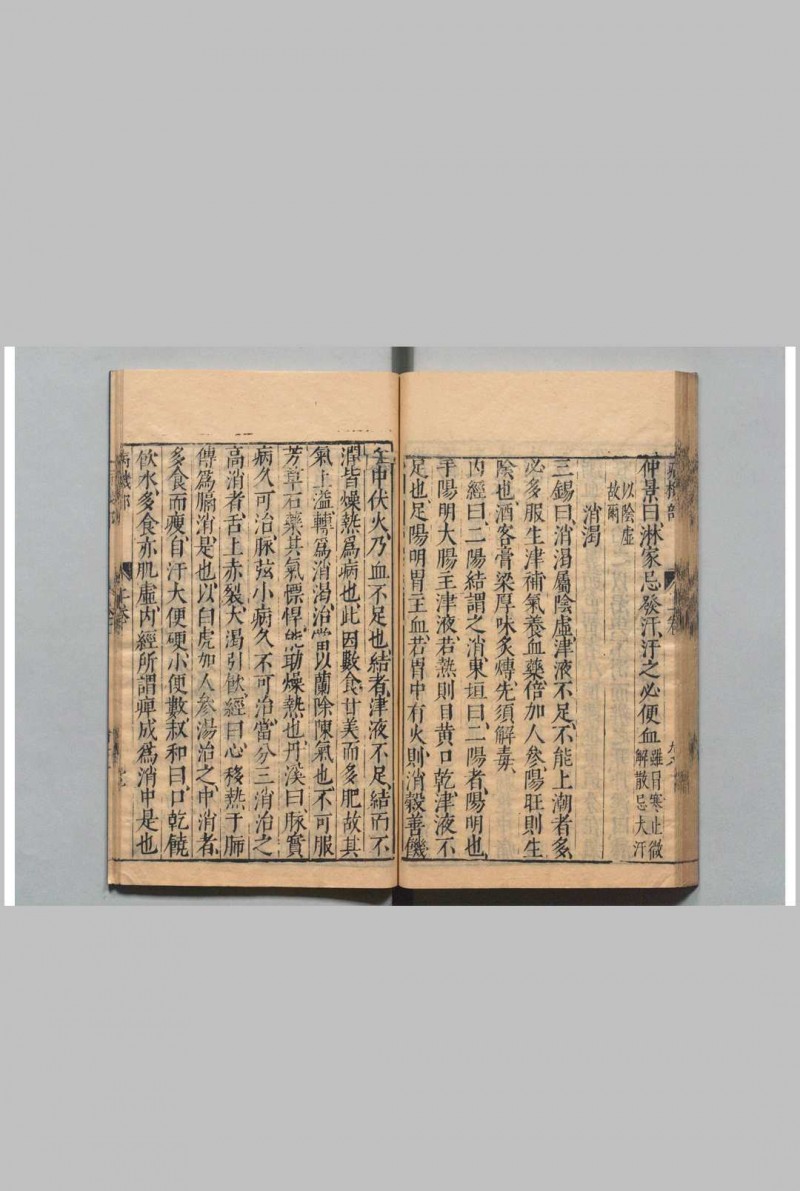 仲景曰淋家忌發汗汗之必便血雖日寒止微
解散忌大汗
以陰虛
故爾
消渴
三錫曰消渴屬陰虛津液不足不能上潮者多
必多服生津補氣養血藥倍加人參陽旺則生
陰也酒客膏梁厚味炙煿先須解毒
內經曰二陽結謂之消東垣曰二陽者陽明也
手陽明大腸主津液若熱則目黄口乾津液不
足也足陽明胃主血若胃中有火則消穀善饑
中伏火乃血不足也結者津液不足結而不
潤皆燥熱爲病也此因數食甘美而多肥故其
氣上溢轉爲消渴治當以蘭除陳氣也不可服
芳草石藥其氣慓悍能助燥熱也丹溪曰脉實
病久可治脉弦小病久不可治當分三消治之
高消者舌上赤裂大渴引飲經曰心移熱于肺
傳爲膈消是也以白虎加人參湯治之中消者
多食而瘦自汗大便硬小便數叔和曰口乾饒
飲水多食亦肌虛內經所謂癉成爲消中是也